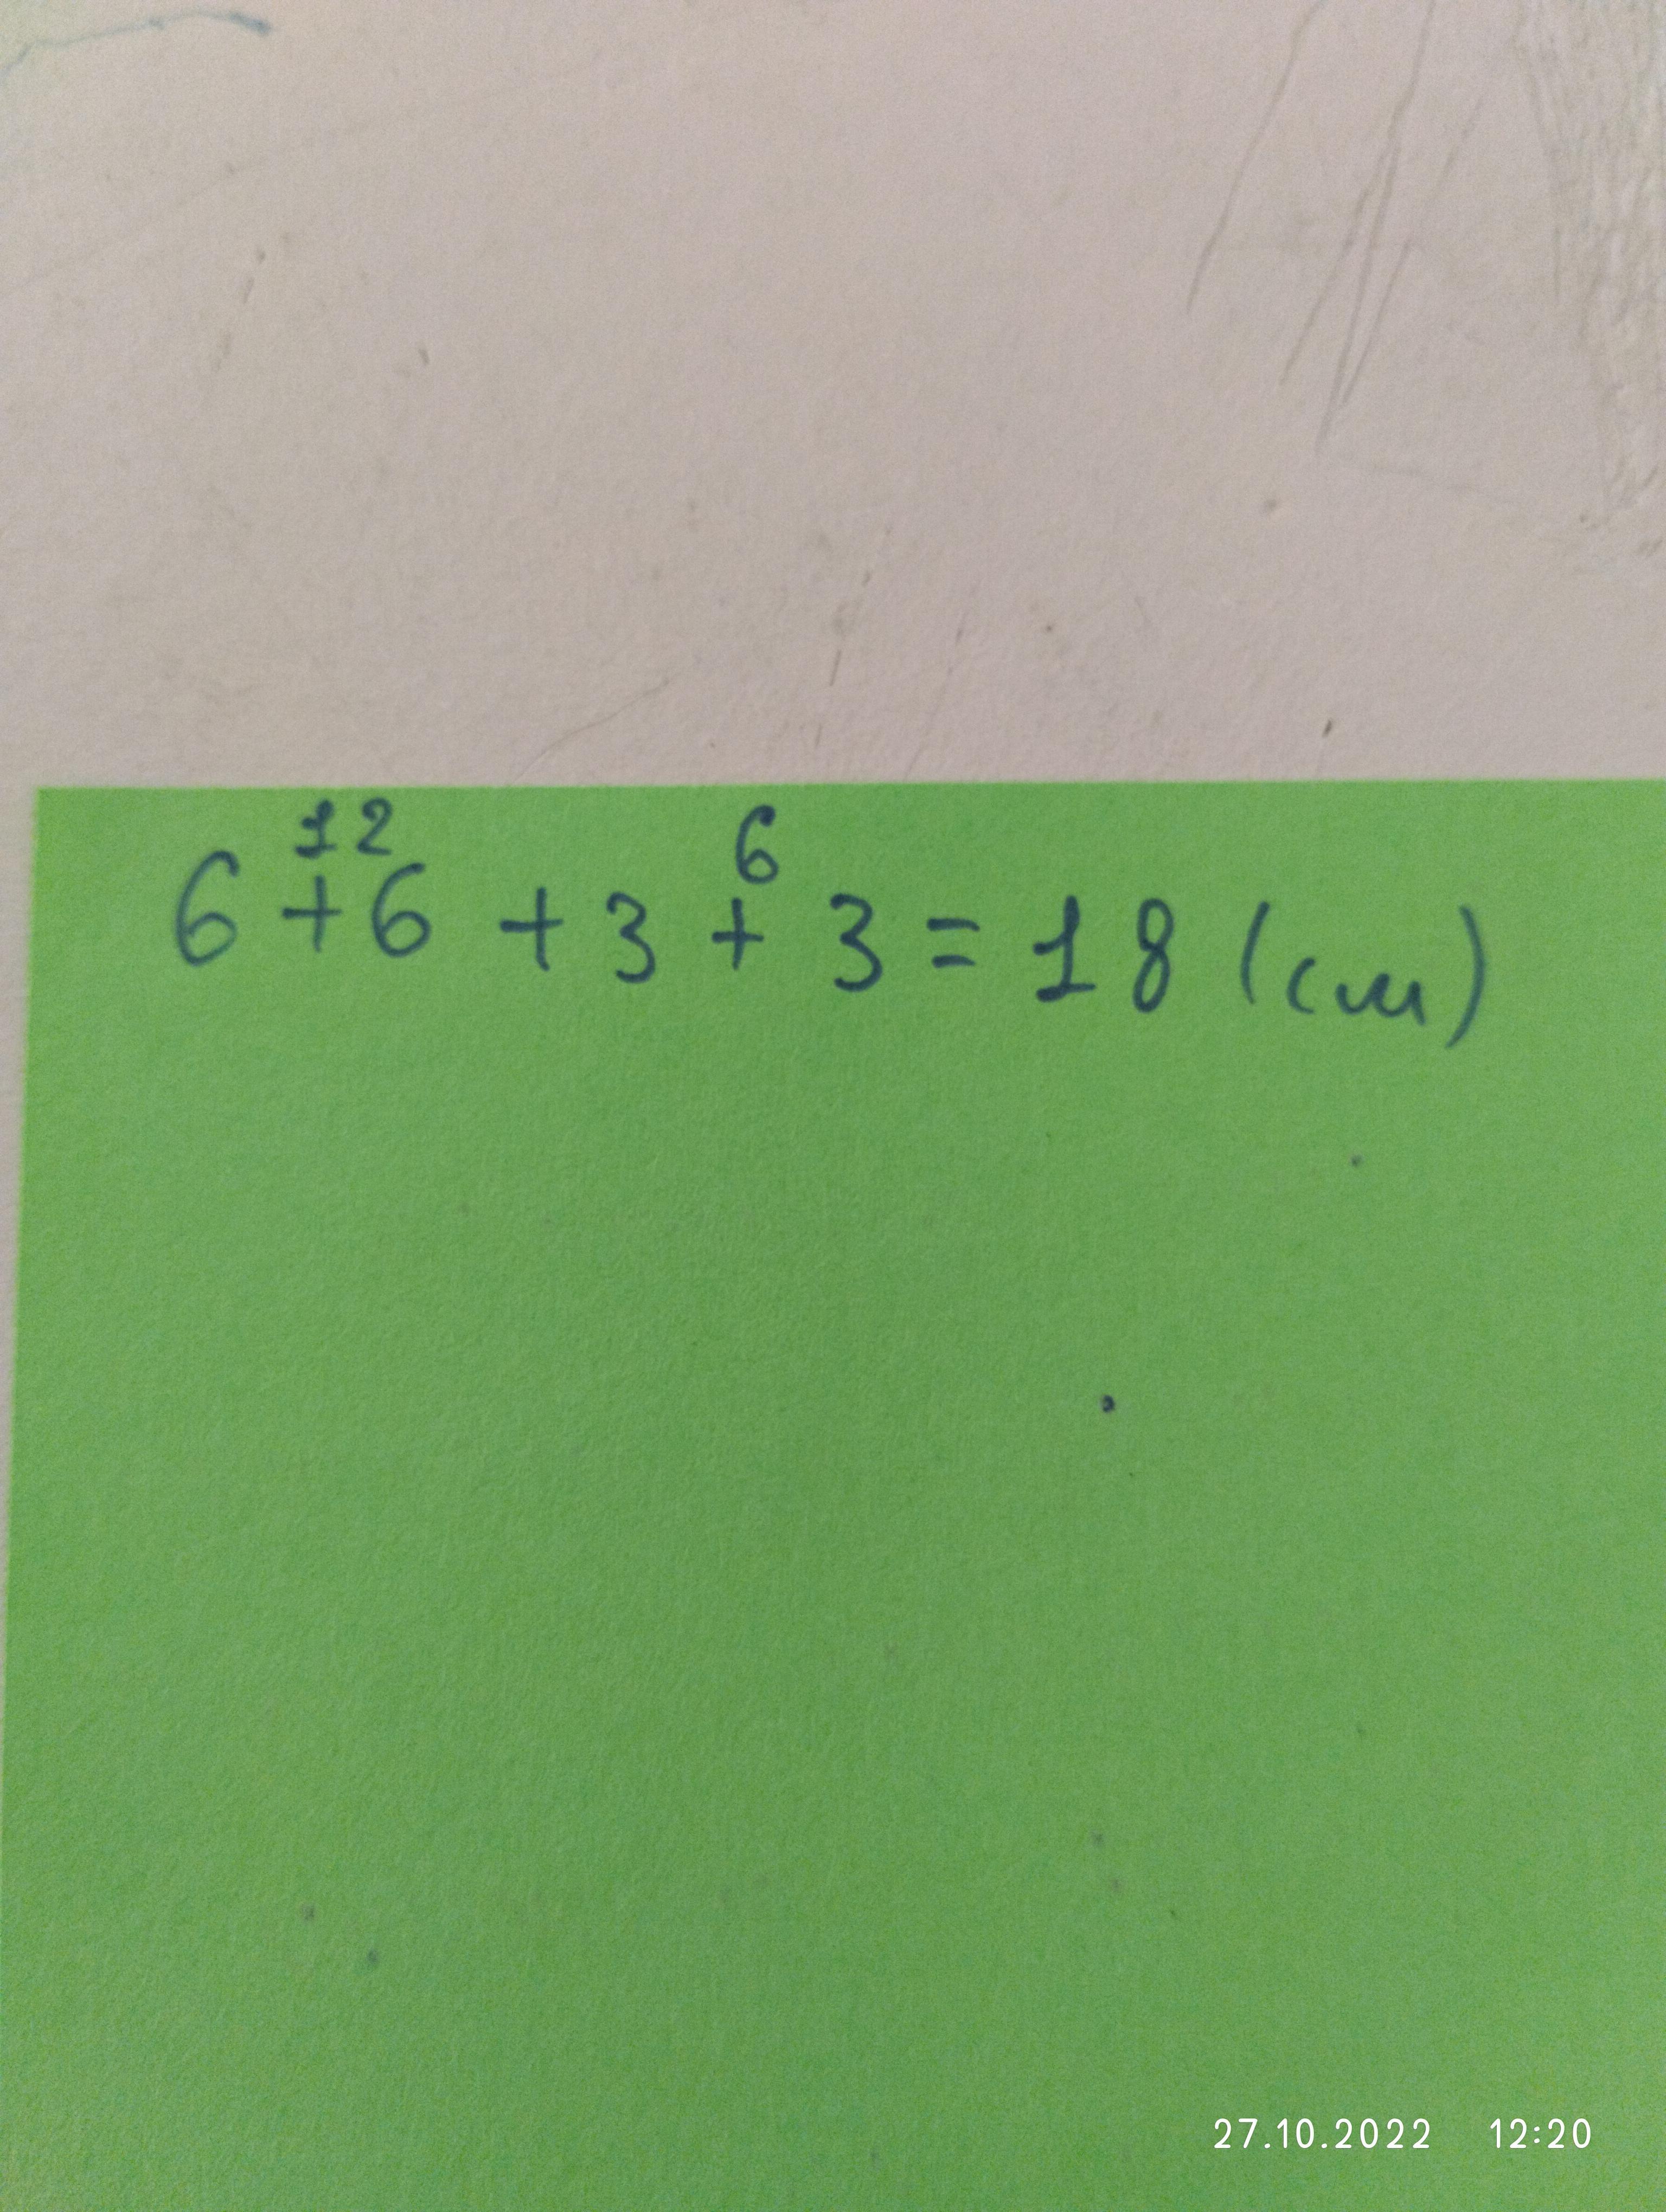 12 6
6 + 6 + 3 + 3 = 18 (см)
27.10.2022 12:20